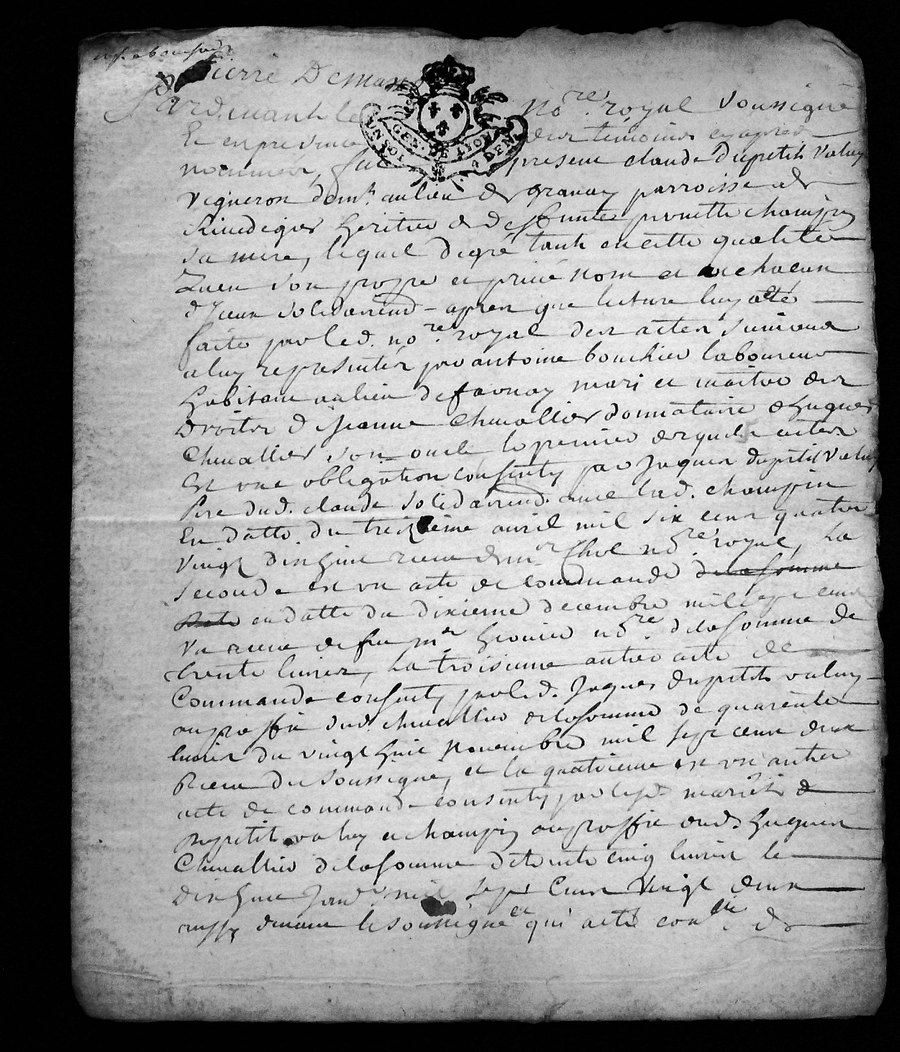 Pierre Demas
Pardevant le No.re royal Soussigné
GEN. DE LYON
UN SOL 4 DEN
Et en presence des temoins cy apres
nommés, present claude dupetit valuy
Vigneron dem.t au lieu de granay parroisse de
heritier de deffunte pernette champin
Sa mere, lequel de gré tant en cette qualité
Qu'en son propre et privé nom et a chacun
d'Iceux solidairem.t apres que lecture luy a eté
faite par led. no.re royal des actes
a luy representés par antoine bouchier laboureur
habitant au lieu de favnay mari et maitre des
Droits de Jeanne Chevallier donnataire d'hugues
Chevallier son oncle le premier desquels actes
Est une obligation consenty par Jaques dupetit valuy
Pere dud. claude solidairem.t avec lad. champin
En datte du treizieme avril mil six cens quatre
Vingt dix huit receue de m.re no.re royal, La
seconde est un acte de commande de la somme
en datte du dixieme decembre mil sept cens
Un receue de feu m.re no.re de la somme de
trente livres, La troisieme autre acte de
Commande consenty par led. Jaques dupetit valuy
au proffit dud. chevallier de la somme de quarente
livres du vingt huit novembre mil sept cens deux
Receu du soussigné, et la quatrieme est un autre
acte de commande consenty par lesd. mariés
Dupetit valuy et champin au proffit dud. hugues
Chevallier de la somme de trente cinq livres le
Dix huit Janv.r mil sept Cens Vingt deux
le soussigné qui acte de